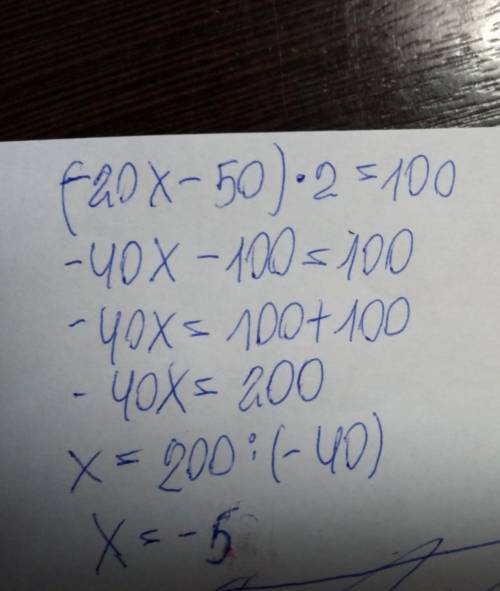 (-20x - 50) · 2 = 100
-40x - 100 = 100
-40x = 100 + 100
-40x = 200
x = 200 : (-40)
x = -5